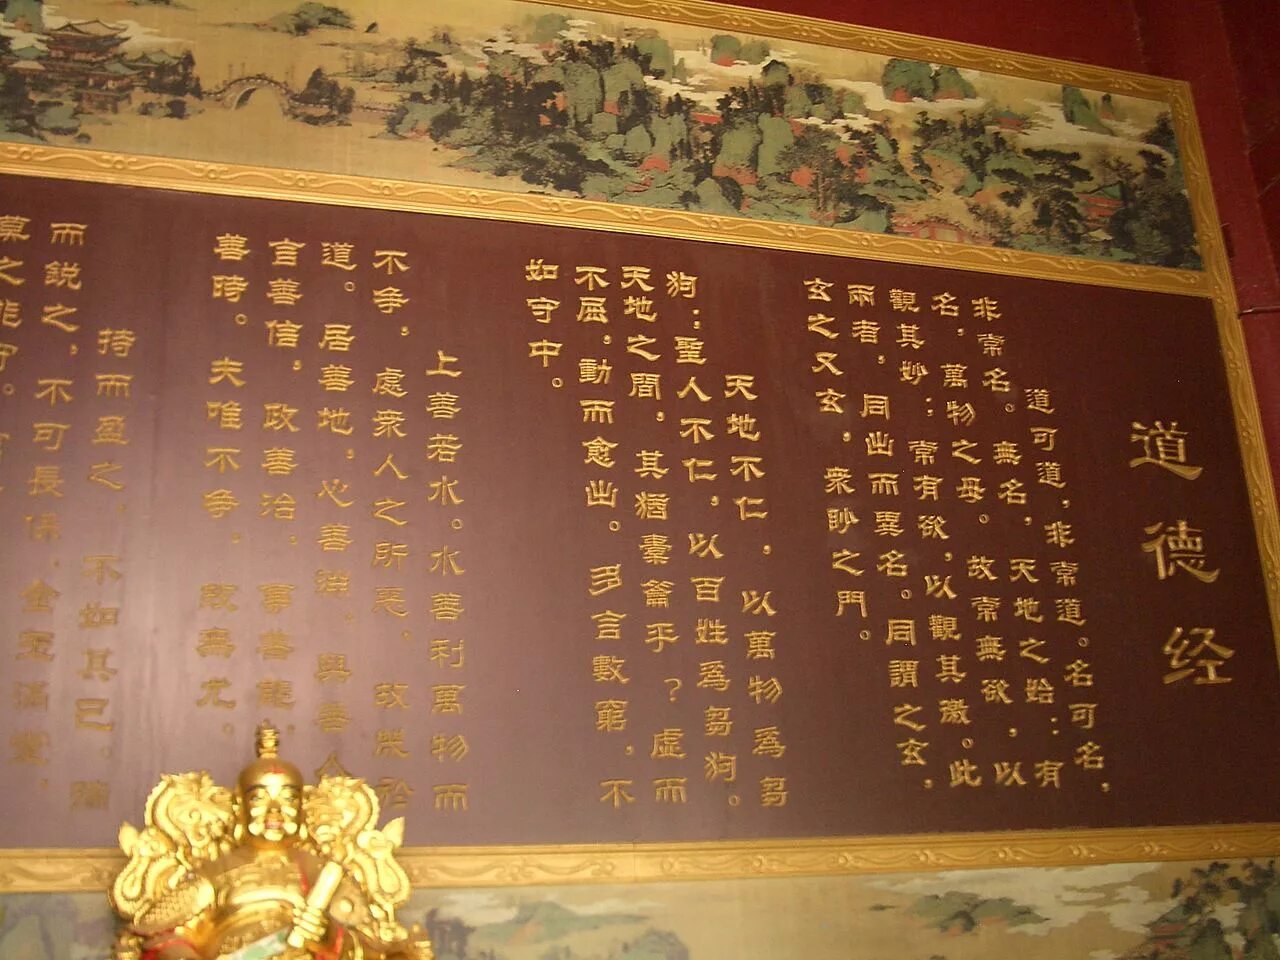 道德经
道可道，非常道。名可名，
非常名。無名，天地之始：有
名，萬物之母。故常無欲，以
觀其妙：常有欲，以觀其徼。此
兩者，同出而異名。同謂之玄，
玄之又玄，衆眇之門。
天地不仁，以萬物爲芻
狗：聖人不仁，以百姓爲芻狗。
天地之間，其猶橐籥乎？虛而
不屈，動而愈出。多言數窮，不
如守中。
上善若水。水善利萬物而
不争，處衆人之所恶。故幾於
道。居善地，心善淵，與善人
言善信，政善治，事善能，
善時。夫唯不争，故無尤。
持而盈之，不如其已。揣
而銳之，不可長保。金玉滿堂，
莫之能守。